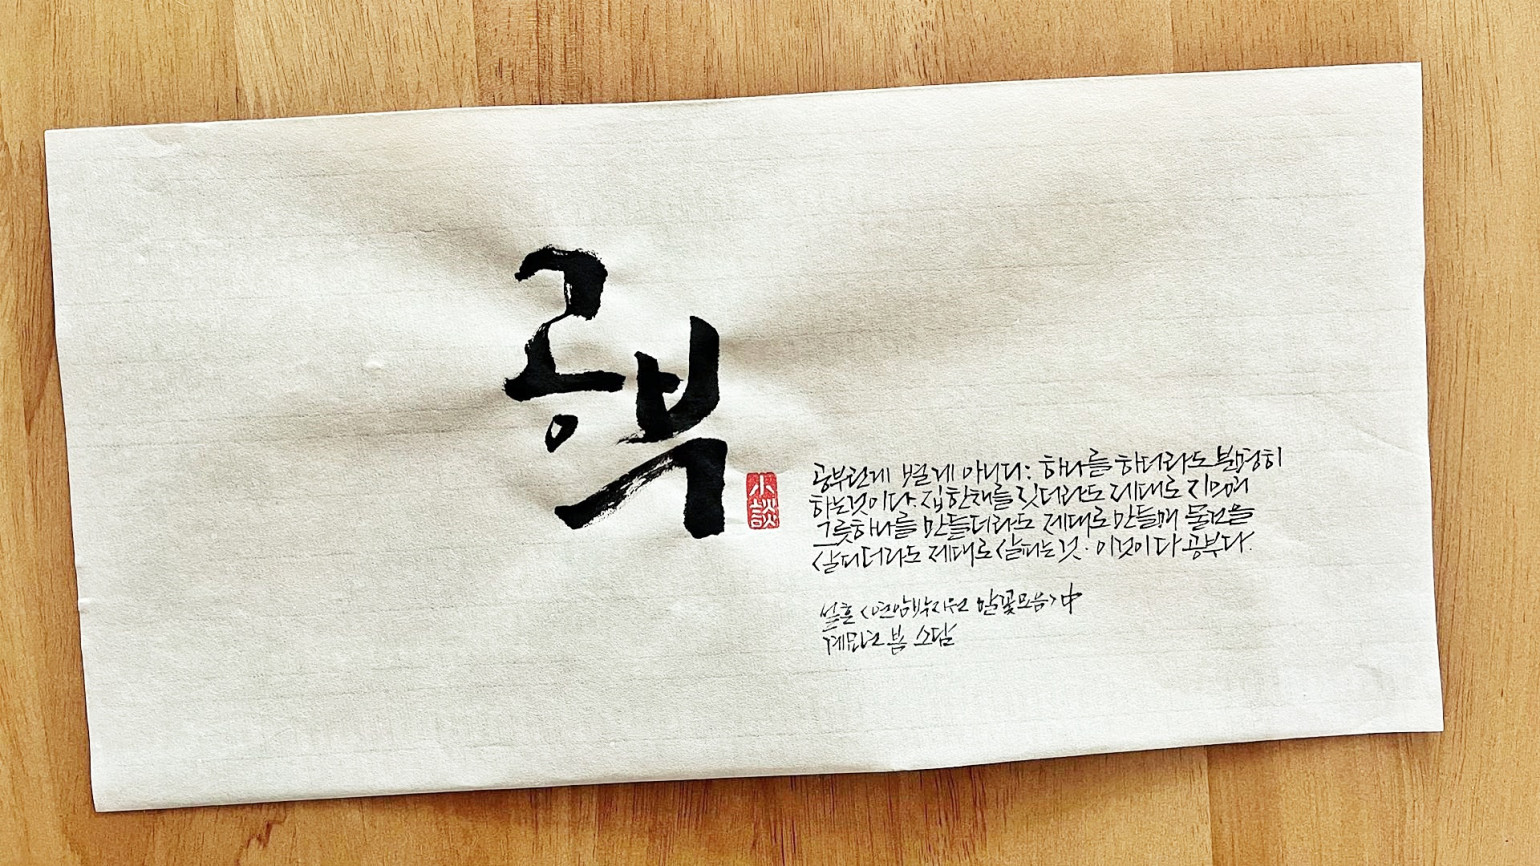 공부
小談
공부란게 별게 아니다: 하나를 하더라도 분명히
하는것이다. 집한채를 짓더라도 제대로 지으며
그릇하나를 만들더라도 제대로 만들며 물건을
살피더라도 제대로 살피는 것. 이것이다 공부다.
설흔 <연암박지원 말꽃모음> 中
계묘년 봄 소담